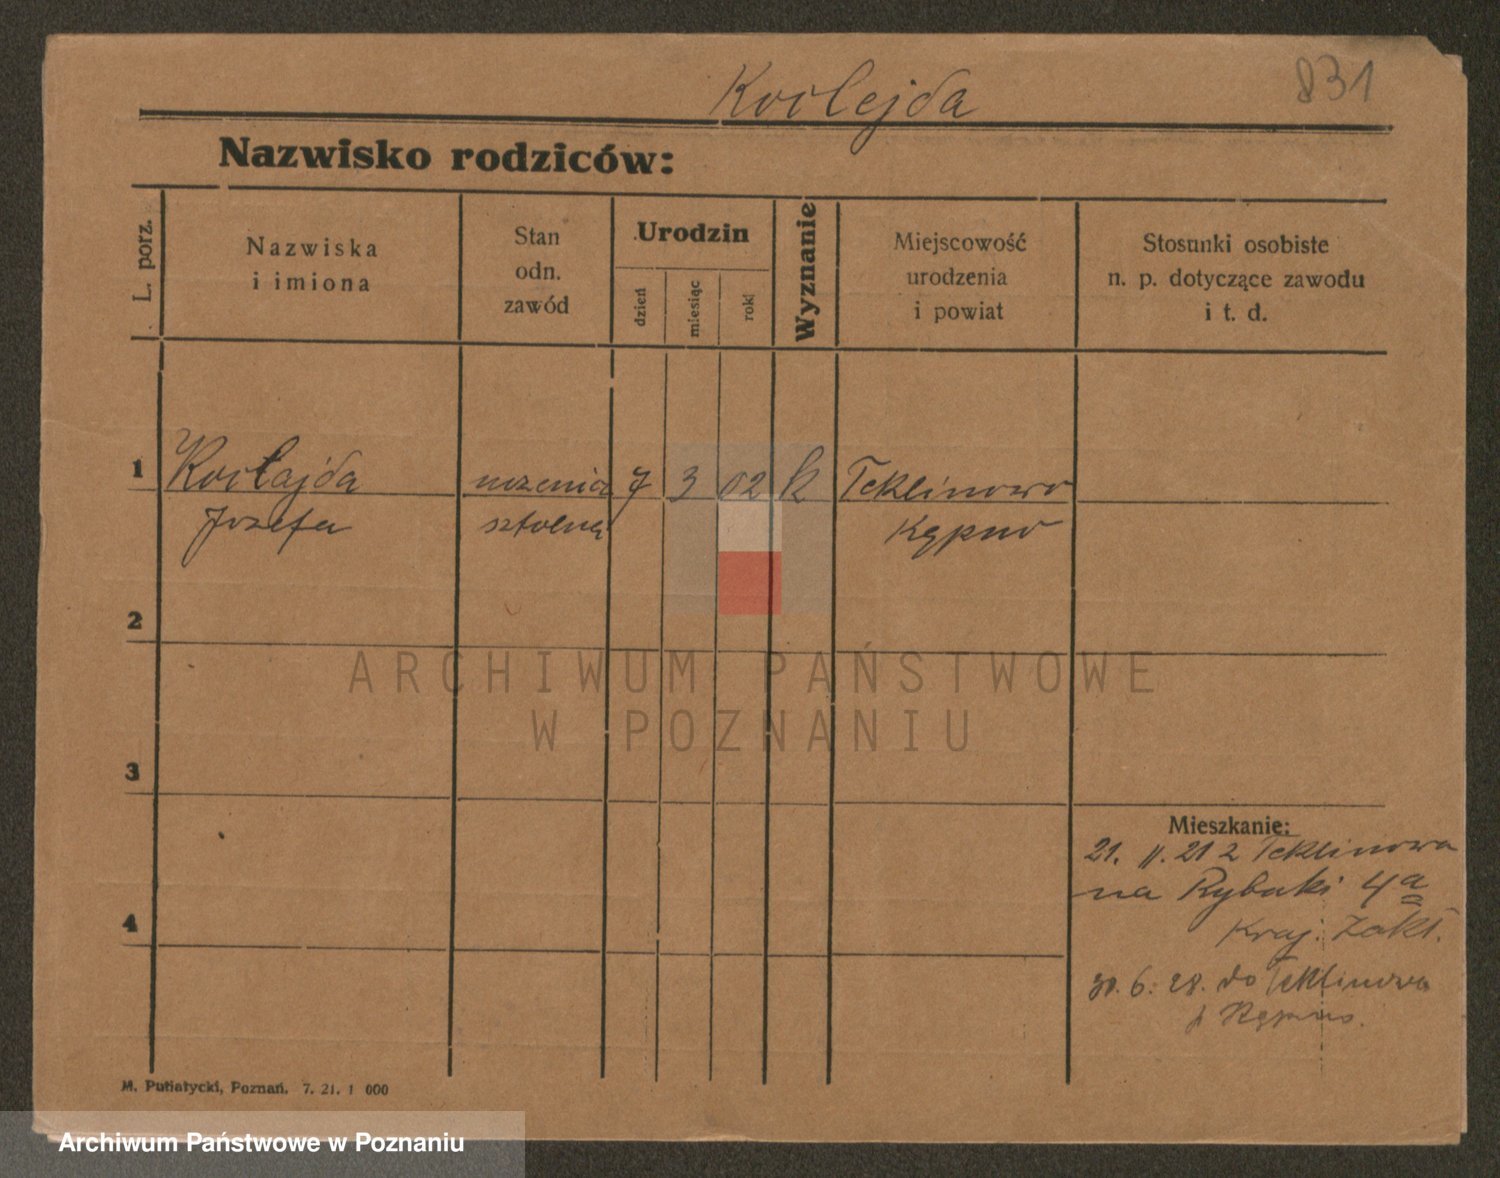 831
Kołlejda
Nazwisko rodziców:
L. porz.
Nazwiska
i imiona
Stan
odn.
zawód
Urodzin
dzień
miesiąc
rok
Wyznanie
Miejscowość
urodzenia
i powiat
Stosunki osobiste
n. p. dotyczące zawodu
i t. d.
1
Józefa
7 3 02 k Teklinowo
Kępno
2
3
4
Mieszkanie:
21. 11. 21 z Teklinowa
na Rybaki 4a
Kraj. Zakł.
30. 6. 28. do Teklinowa
p Kępno.
M. Putiatycki, Poznań. 7. 21. 1 000
ARCHIWUM PAŃSTWOWE
W POZNANIU
Archiwum Państwowe w Poznaniu